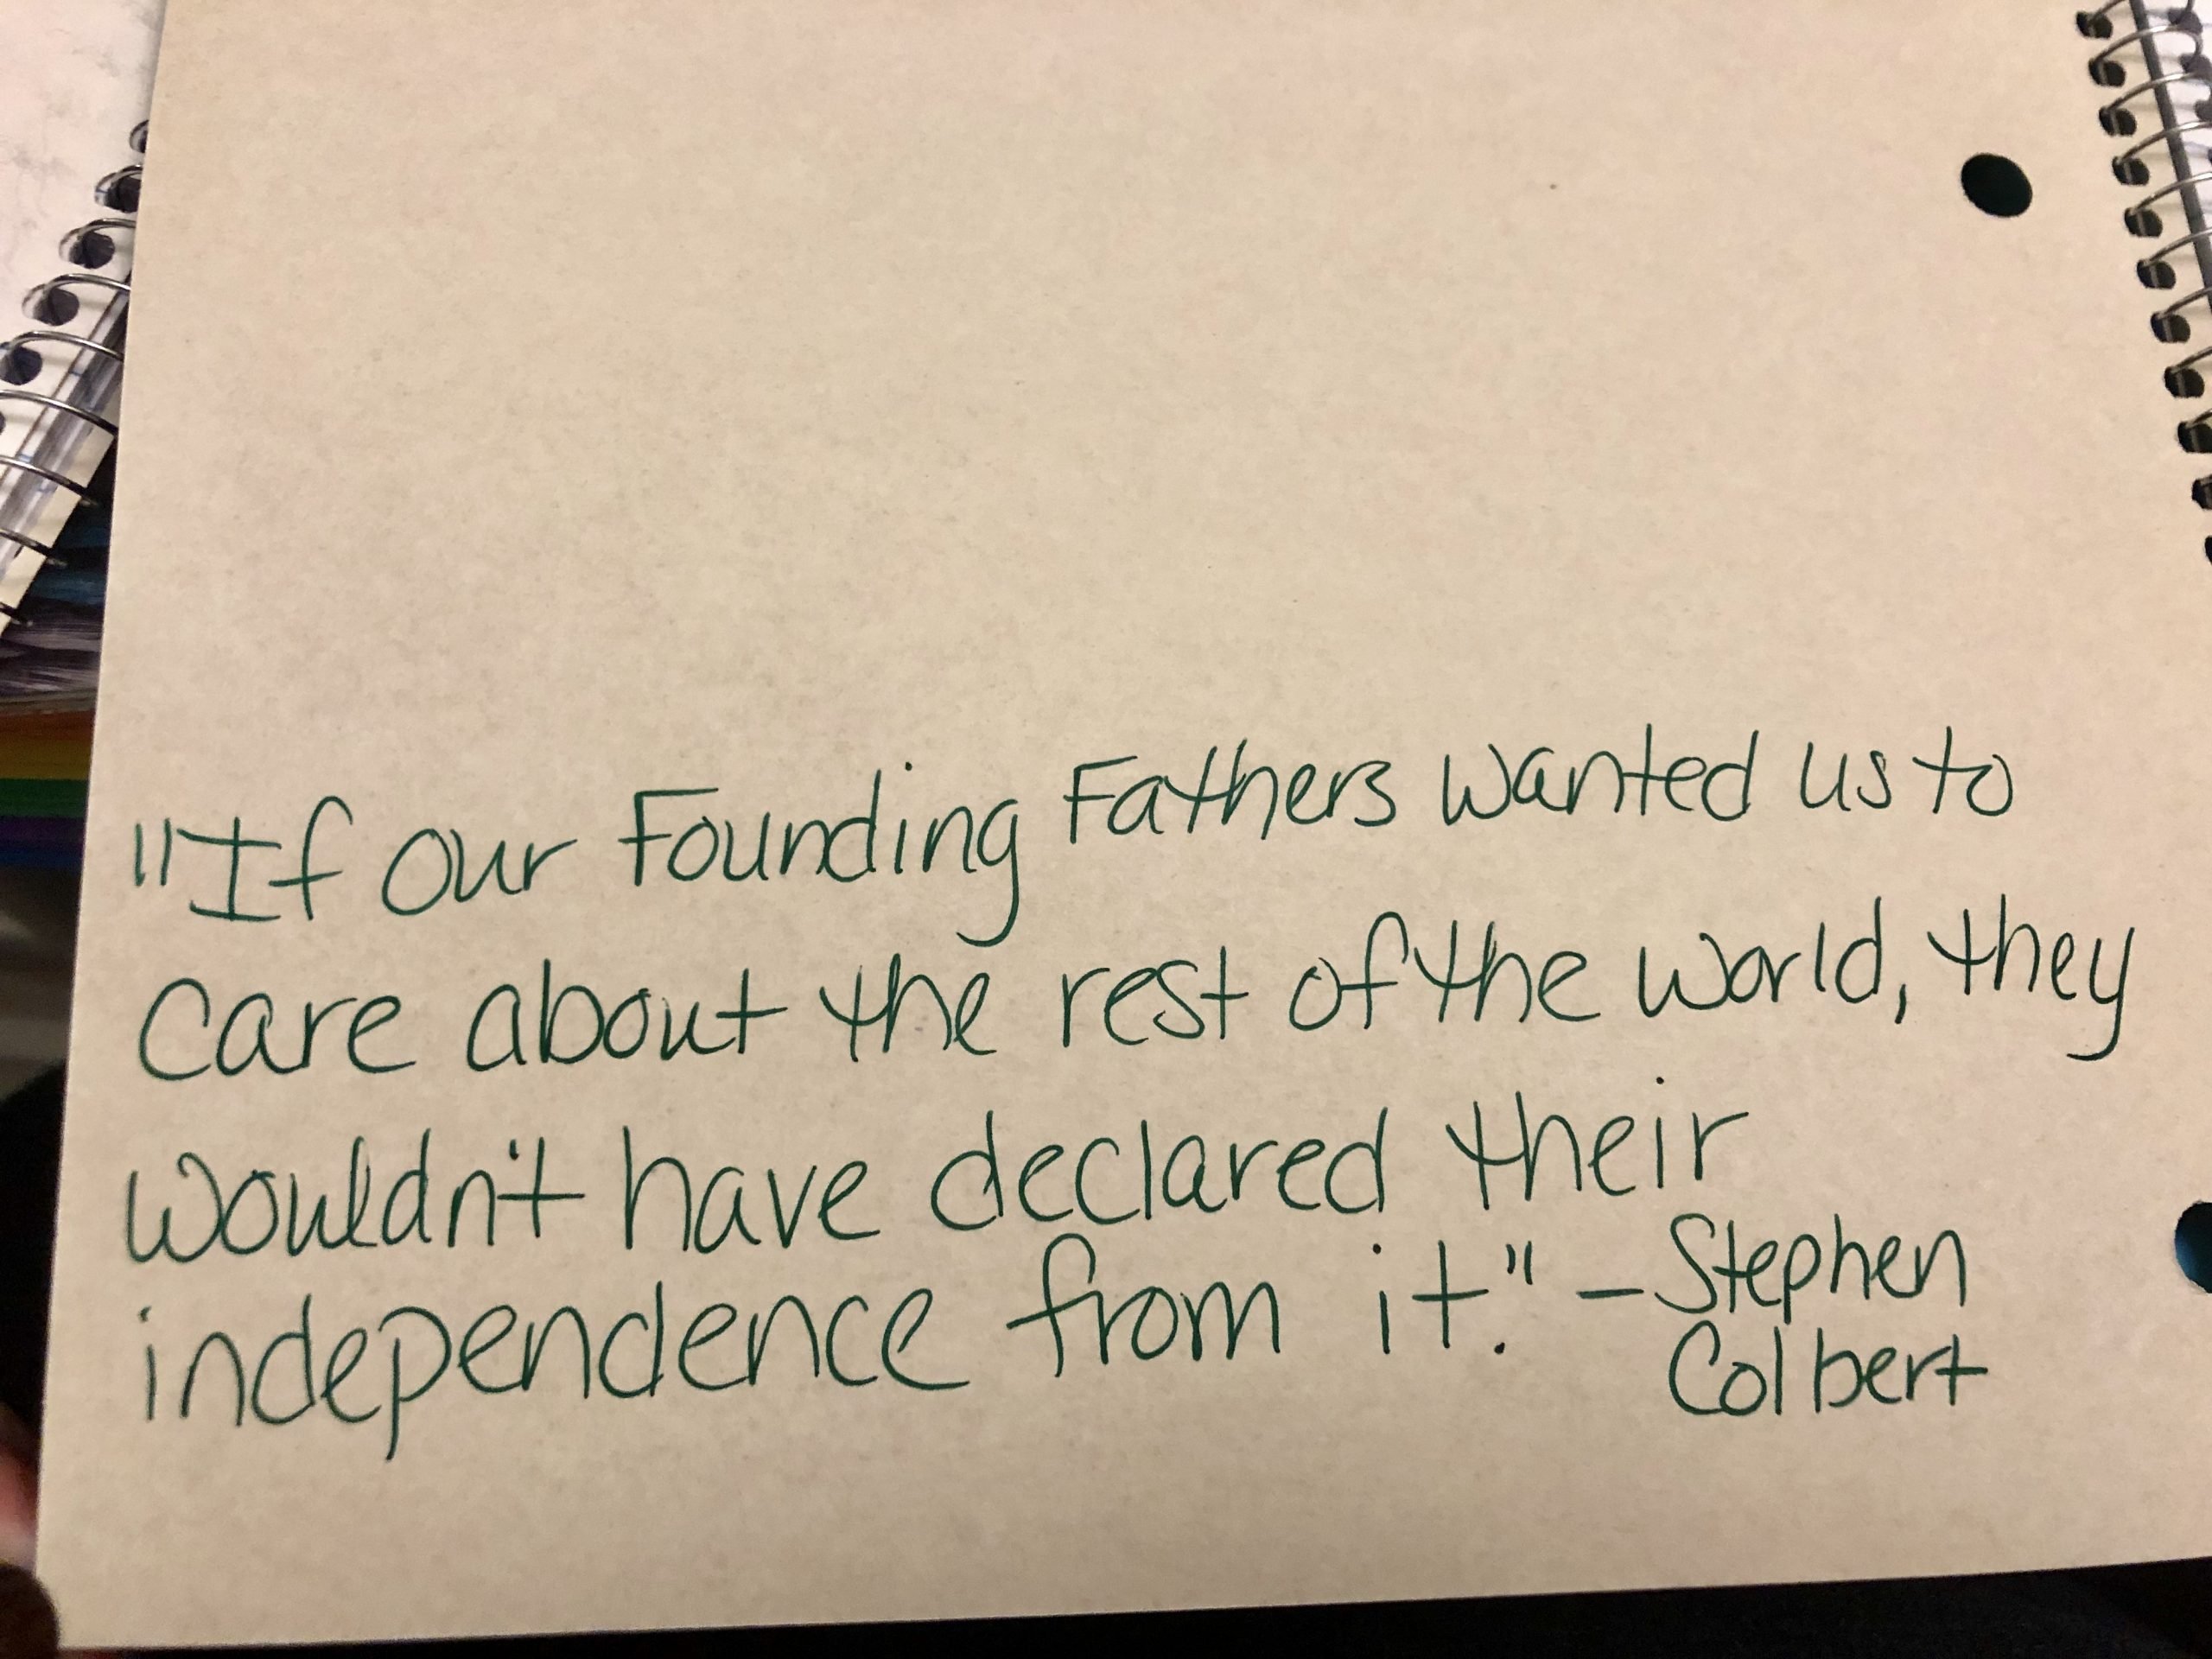 "If our Founding Fathers wanted us to
care about the rest of the world, they
wouldn't have declared their
independence from it." - Stephen
Colbert